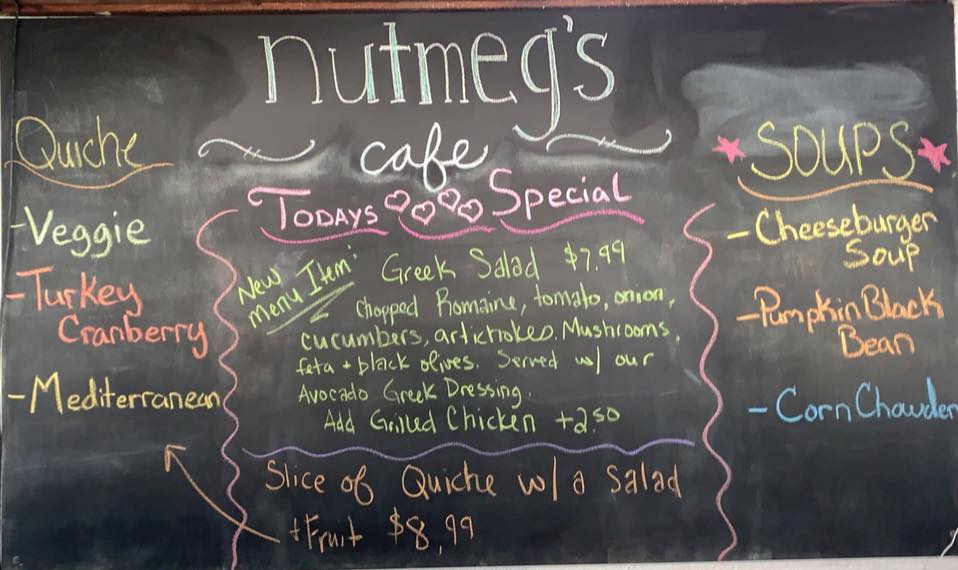 nutmeg's
cafe
Quiche
-Veggie
-Turkey
Cranberry
-Mediterranean
Todays Special
New
Menu Item:
Greek Salad $7.99
Chopped Romaine, tomato, onion,
cucumbers, artichokes. Mushrooms,
feta + black olives. Served w/ our
Avocado Greek Dressing.
Add Grilled Chicken +2.50
Slice of Quiche w/ a Salad
+Fruit $8.99
SOUPS
-Cheeseburger
Soup
-Pumpkin Black
Bean
-Corn Chowder